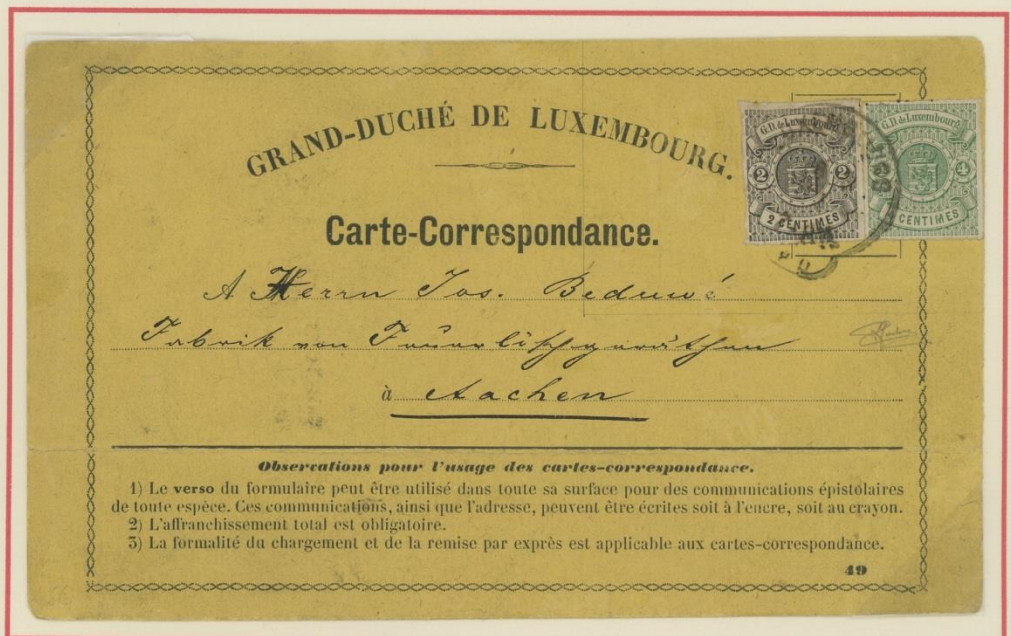 GRAND-DUCHÉ DE LUXEMBOURG.
G.D. de Luxembourg
2 2
2 CENTIMES
G.D. de Luxembourg
4
CENTIMES
Carte-Correspondance.
A Herrn Jos. Beduwé
Fabrik von Feuerlöschgeräthen
à Aachen
Observations pour l'usage des cartes-correspondance.
1) Le verso du formulaire peut être utilisé dans toute sa surface pour des communications épistolaires
de toute espèce. Ces communications, ainsi que l'adresse, peuvent être écrites soit à l'encre, soit au crayon.
2) L'affranchissement total est obligatoire.
3) La formalité du chargement et de la remise par exprès est applicable aux cartes-correspondance.
49